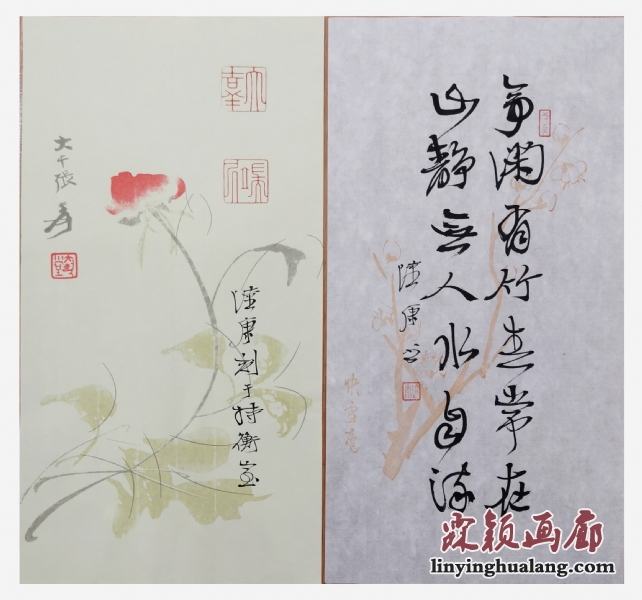 大千張爰
陸康刻于持衡室
亭閑有竹春常在
山靜無人水自流
陸康书
霖颖画廊
linyinghualang.com